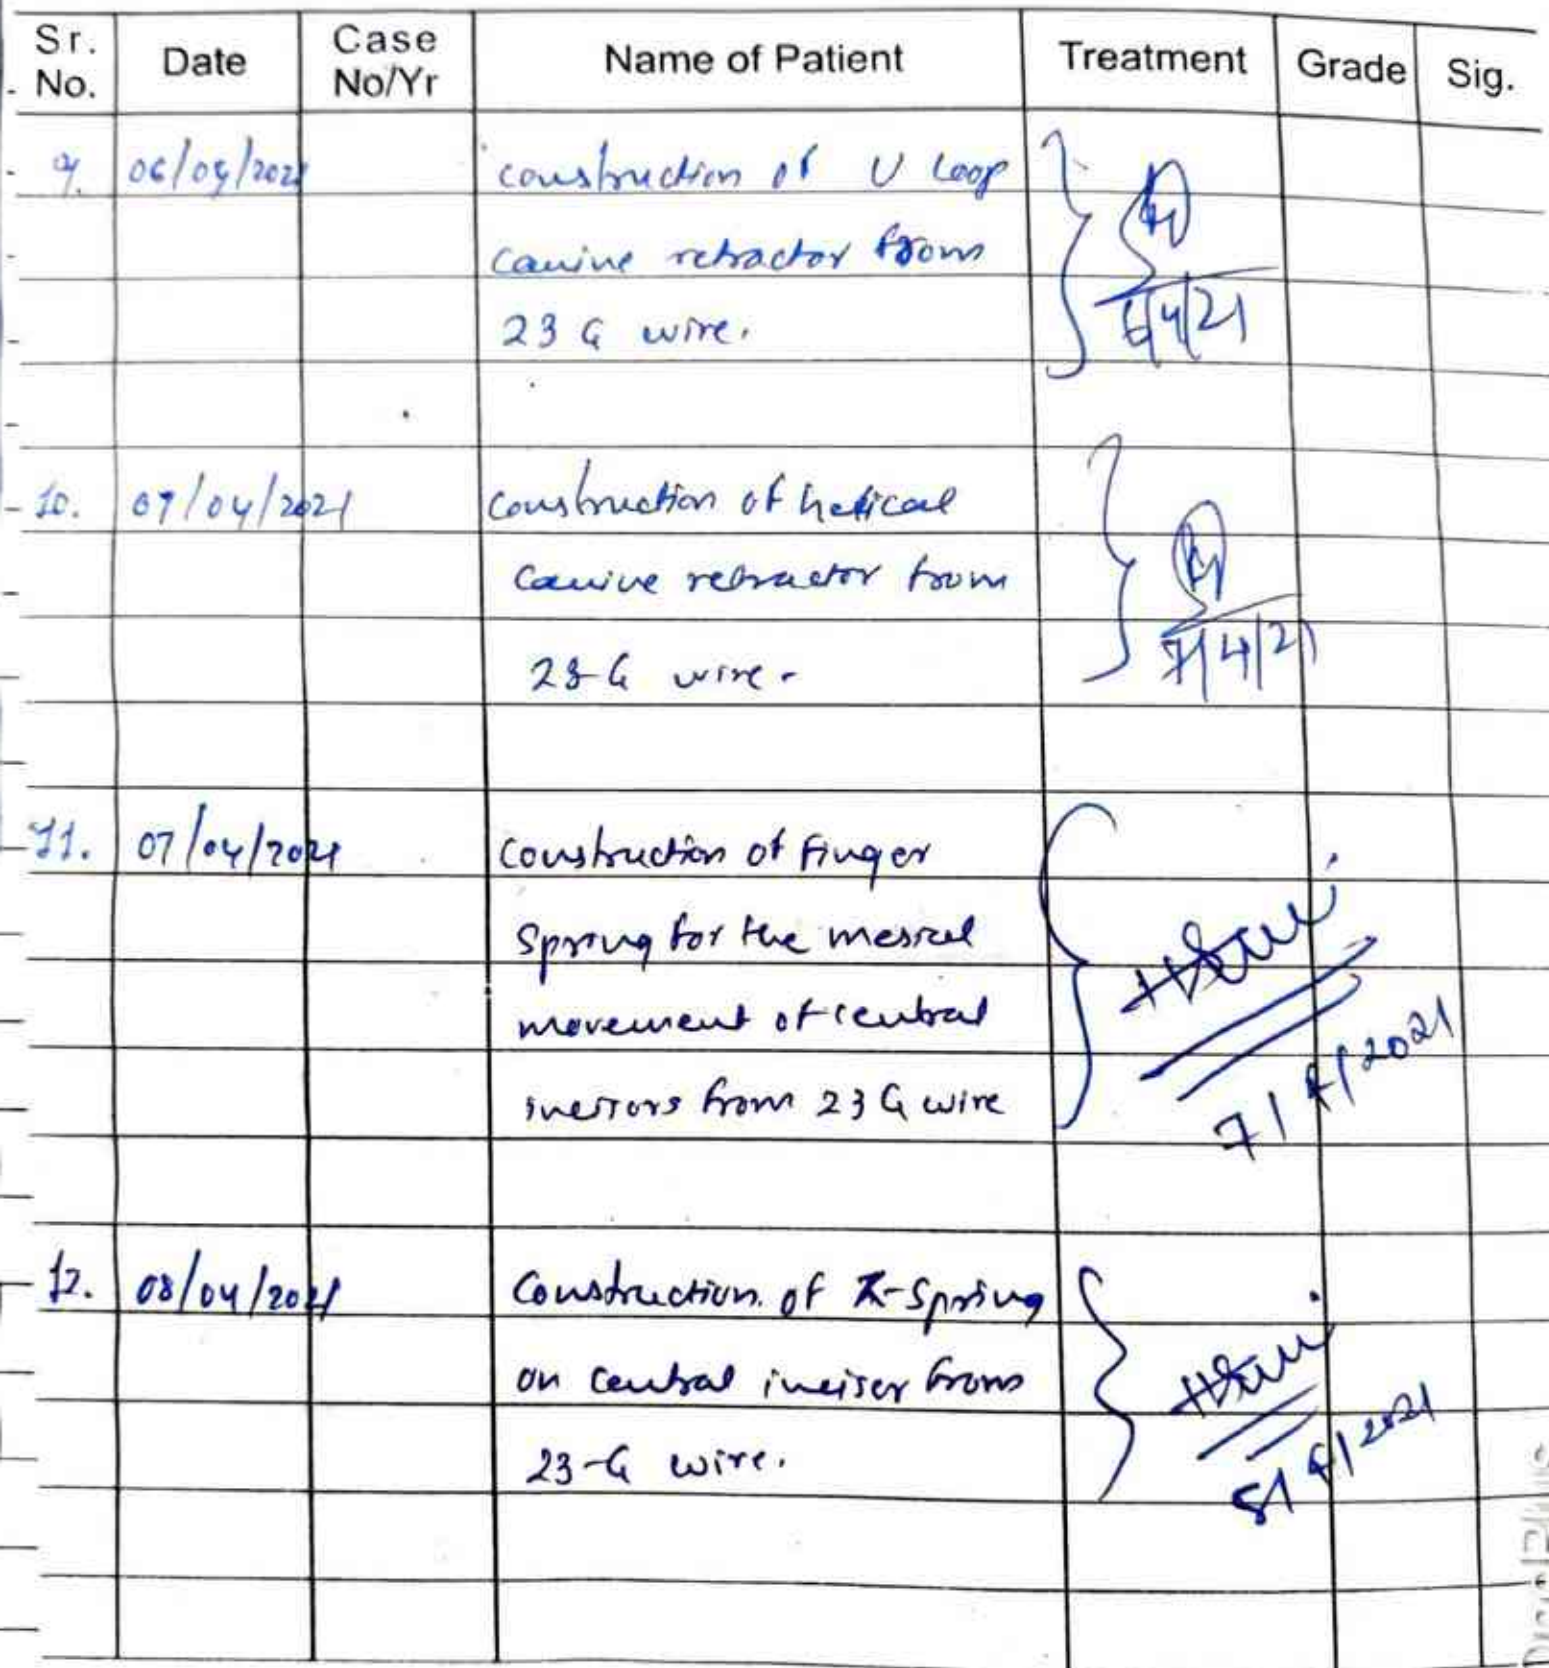 Sr. No. Date Case No/Yr Name of Patient Treatment Grade Sig.
9. 06/04/2021 construction of U Loop
canine retractor from
23 G wire.
6/4/21
10. 07/04/2021 construction of helical
canine retractor from
23-G wire.
7/4/21
11. 07/04/2021 construction of finger
spring for the mesial
movement of central
incisors from 23 G wire
7/4/2021
12. 08/04/2021 Construction of Z-Spring
on central inciser from
23-G wire.
8/4/2021